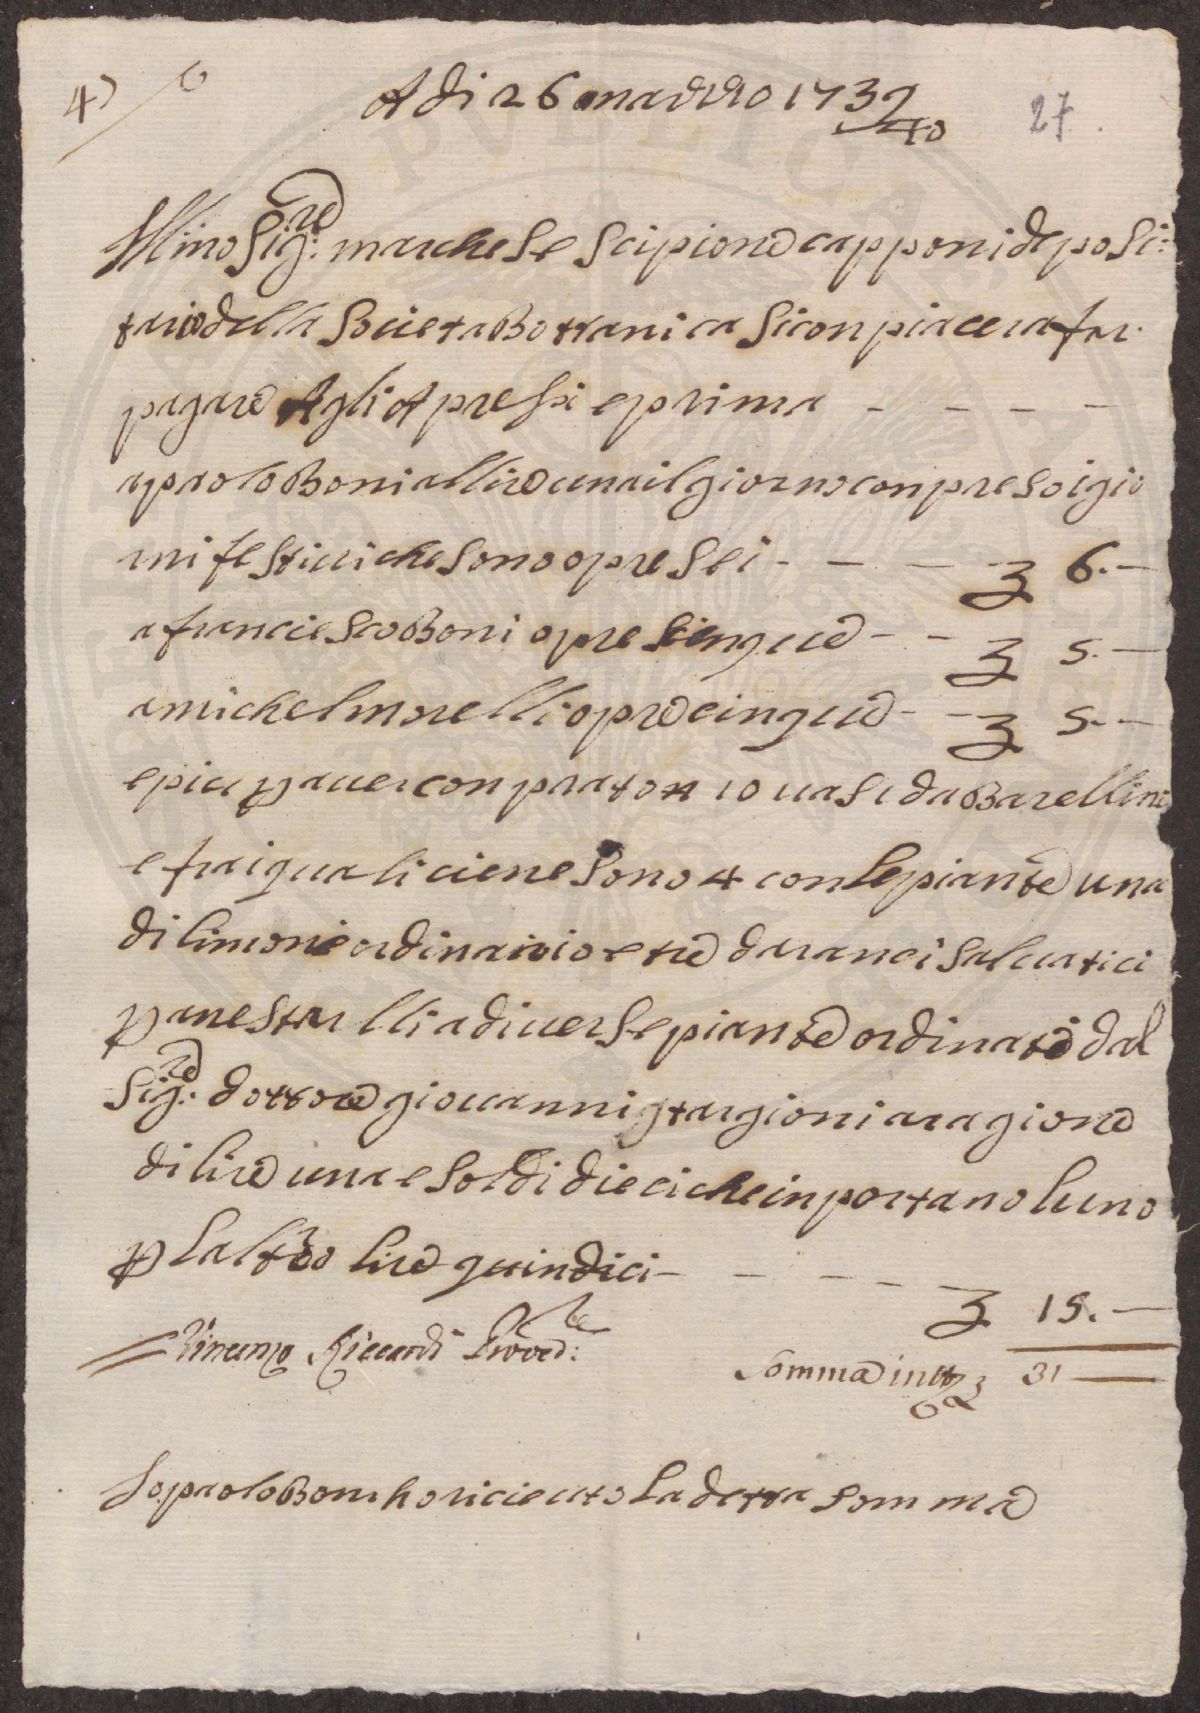 47 6
A di 26 marzio 1739
40
27
Illmo Sig:re marchese Scipione capponi deposi:
tario della Societa Bottanica si conpiacera far
pagare Agli Apressi e prima - - - -
a paolo Boni a llire una il giorno conpreso i gio
rni festiui che sono opre sei - - - £ 6.-
a franciesco Boni opre cinque - - £ 5.-
a michel morelli opre cinque - - £ 5.-
e piu p auer conprato n 10 uasi da Barelline
e fra i quali ciene sono 4 con le piante una
di limone ordinario e tre daranci saluatici
p anestar lli a diuerse piante ordinate dal
Sig:re dottore giouanni targioni a ragione
di lire una e soldi dieci che inportano luno
p laltro lire quindici - - - - - £ 15.-
Vincenzo Riccardi Provved:re
Somma in tto £ 31 -
Io paolo Boni ho riceuto la detta somma